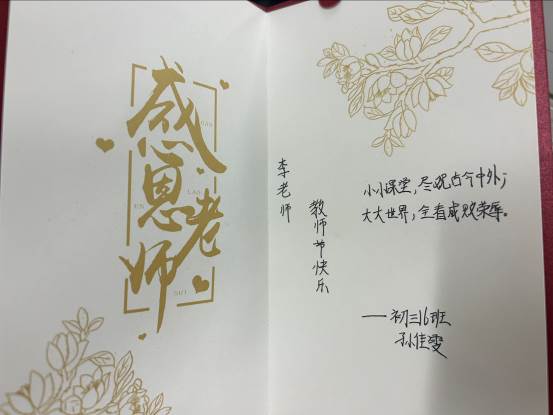 感恩老师
GAN
EN
LAO
SHI
李老师
教师节快乐
小小课堂，尽观古今中外；
大大世界，全看成败荣辱。
——初三16班
孙佳雯